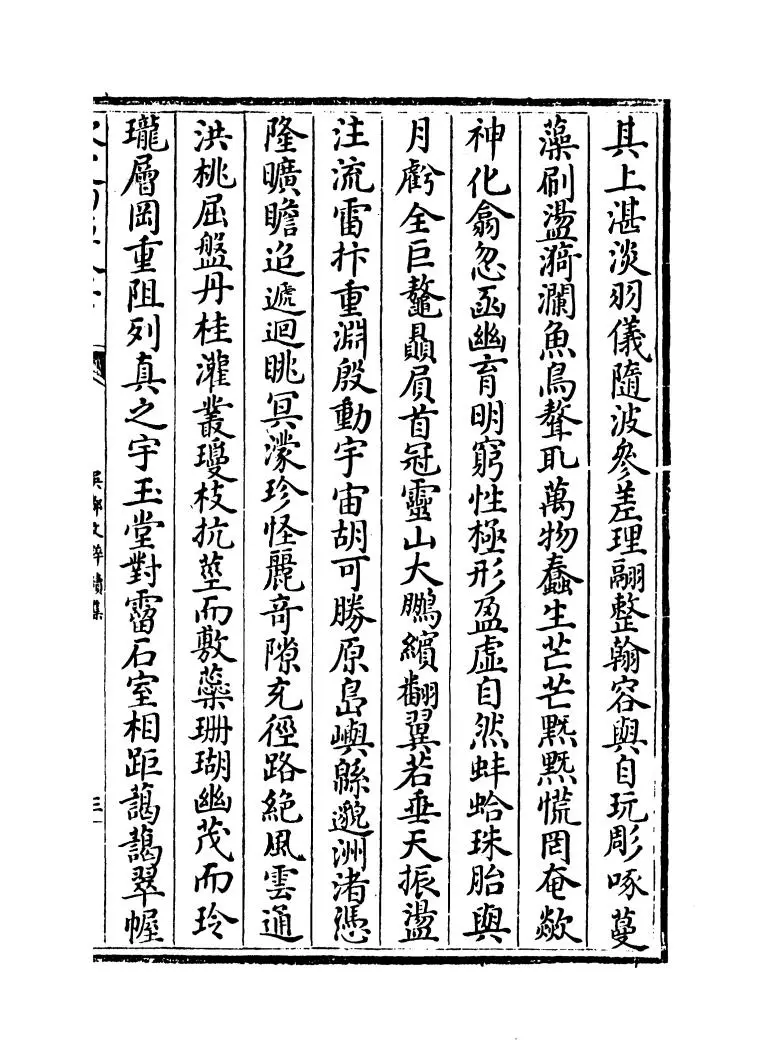 其上湛淡羽儀隨波參差理翮整翰容與自玩彫啄蔓
藻刷盪漪瀾魚鳥聱耴萬物蠢生芒芒黖黖慌罔奄欻
神化翕忽函幽育明窮性極形盈虛自然蚌蛤珠胎與
月虧全巨鼇贔屓首冠靈山大鵬繽翻翼若垂天振盪
注流雷抃重淵殷動宇宙胡可勝原島嶼緜邈洲渚憑
隆曠瞻迢遞迴眺冥濛珍怪麗竒隙充徑路絶風雲通
洪桃屈盤丹桂灌叢瓊枝抗莖而敷蘂珊瑚幽茂而玲
瓏層岡重阻列真之宇玉堂對霤石室相距藹藹翠幄
吳都文粹續集
三